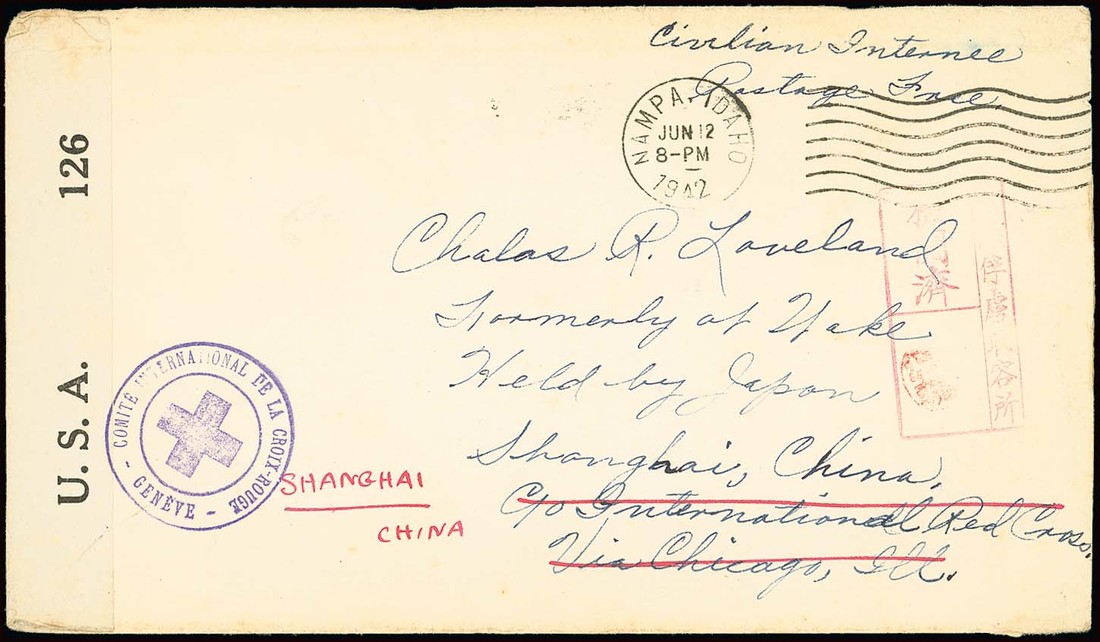 Civilian Internee
Postage Free
NAMPA, IDAHO
JUN 12
8-PM
1942
Chalas R. Loveland
Formerly of Wake
Held by Japan
Shanghai, China.
C/o International Red Cross.
Via Chicago, Ill.
SHANGHAI
CHINA
U. S. A. 126
COMITÉ INTERNATIONAL DE LA CROIX-ROUGE
- GENÈVE -
済
俘虜
所